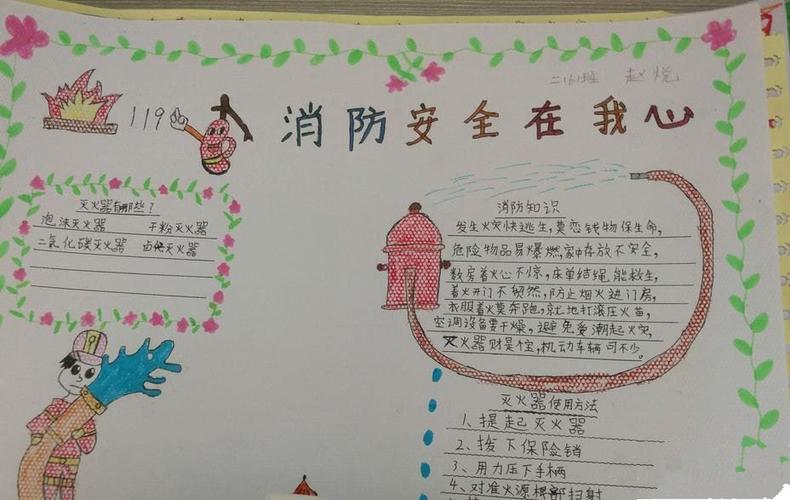 二(6)班 赵悦
119
消防安全在我心
灭火器有哪些?
泡沫灭火器 干粉灭火器
二氧化碳灭火器 卤代灭火器
消防知识
发生火灾快逃生,莫恋钱物保生命,
危险物品易爆燃,家中存放不安全,
数房着火心不惊,床单结绳能救生,
着火开门不贸然,防止烟火进门房,
衣服着火莫奔跑,就地打滚压火苗,
空调设备要干燥,避免受潮起火灾,
灭火器财是个宝,机动车辆可不少。
灭火器使用方法
1、提起灭火器
2、拔下保险销
3、用力压下手柄
4、对准火源根部扫射